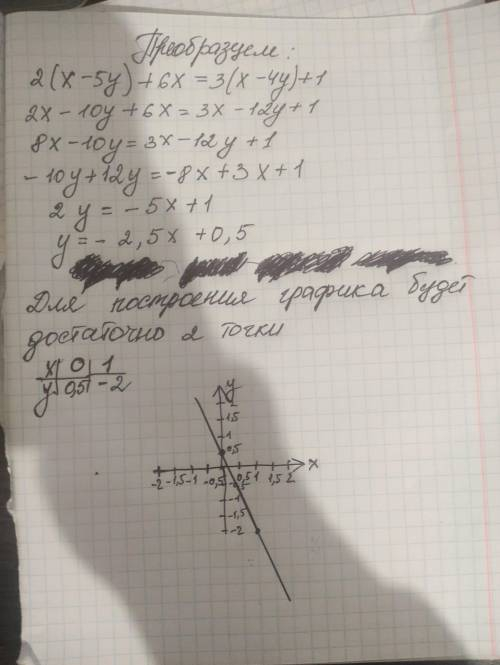 Преобразуем:
2(x-5y)+6x=3(x-4y)+1
2x-10y+6x=3x-12y+1
8x-10y=3x-12y+1
-10y+12y=-8x+3x+1
2y=-5x+1
y=-2,5x+0,5
Для построения графика будет
достаточно 2 точки
x| 0 | 1
y| 0,5| -2
y
2
1,5
1
0,5
-2 -1,5 -1 -0,5 0,5 1 1,5 2 x
-0,5
-1
-1,5
-2